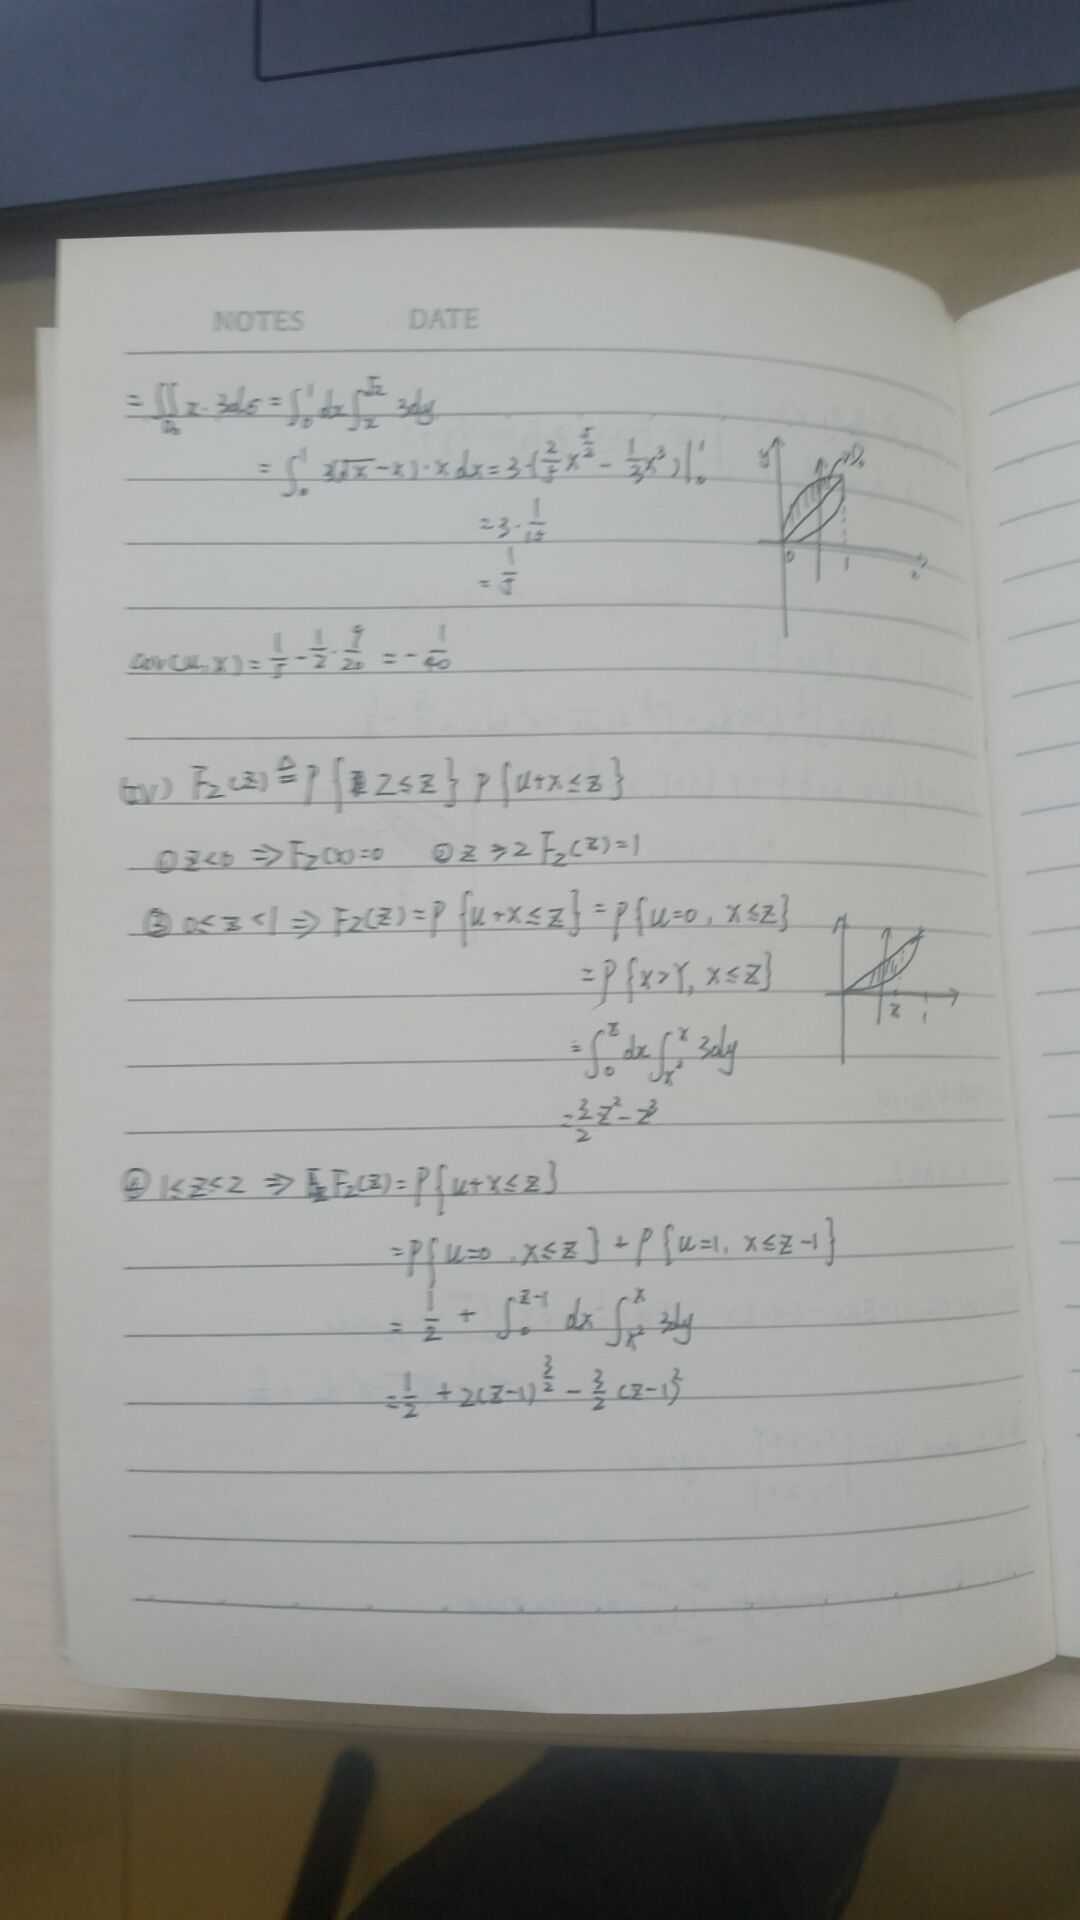 NOTES DATE
= ∬_{D₀} x·3dσ = ∫₀¹ dx ∫ₓ^{√x} 3dy
= ∫₀¹ 3(√x - x)·x dx = 3·(2/5 x^{5/2} - 1/3 x³)|₀¹
= 3·1/15
= 1/5
y D₀ 0 1 x
cov(u,x) = 1/5 - 1/2·9/20 = -1/40
(IV) F_Z(z) ≜ P{Z≤z} P{u+x≤z}
① z<0 ⇒ F_Z(x)=0 ② z≥2 F_Z(z)=1
③ 0≤z<1 ⇒ F_Z(z) = P{u+x≤z} = P{u=0, x≤z}
= P{x>Y, x≤z}
= ∫₀^z dx ∫_{x²}^x 3dy
z 1
= 3/2 z² - z³
④ 1≤z<2 ⇒ F_Z(z) = P{u+x≤z}
= P{u=0, x≤z} + P{u=1, x≤z-1}
= 1/2 + ∫₀^{z-1} dx ∫_{x²}^x 3dy
= 1/2 + 2(z-1)^{3/2} - 3/2 (z-1)²